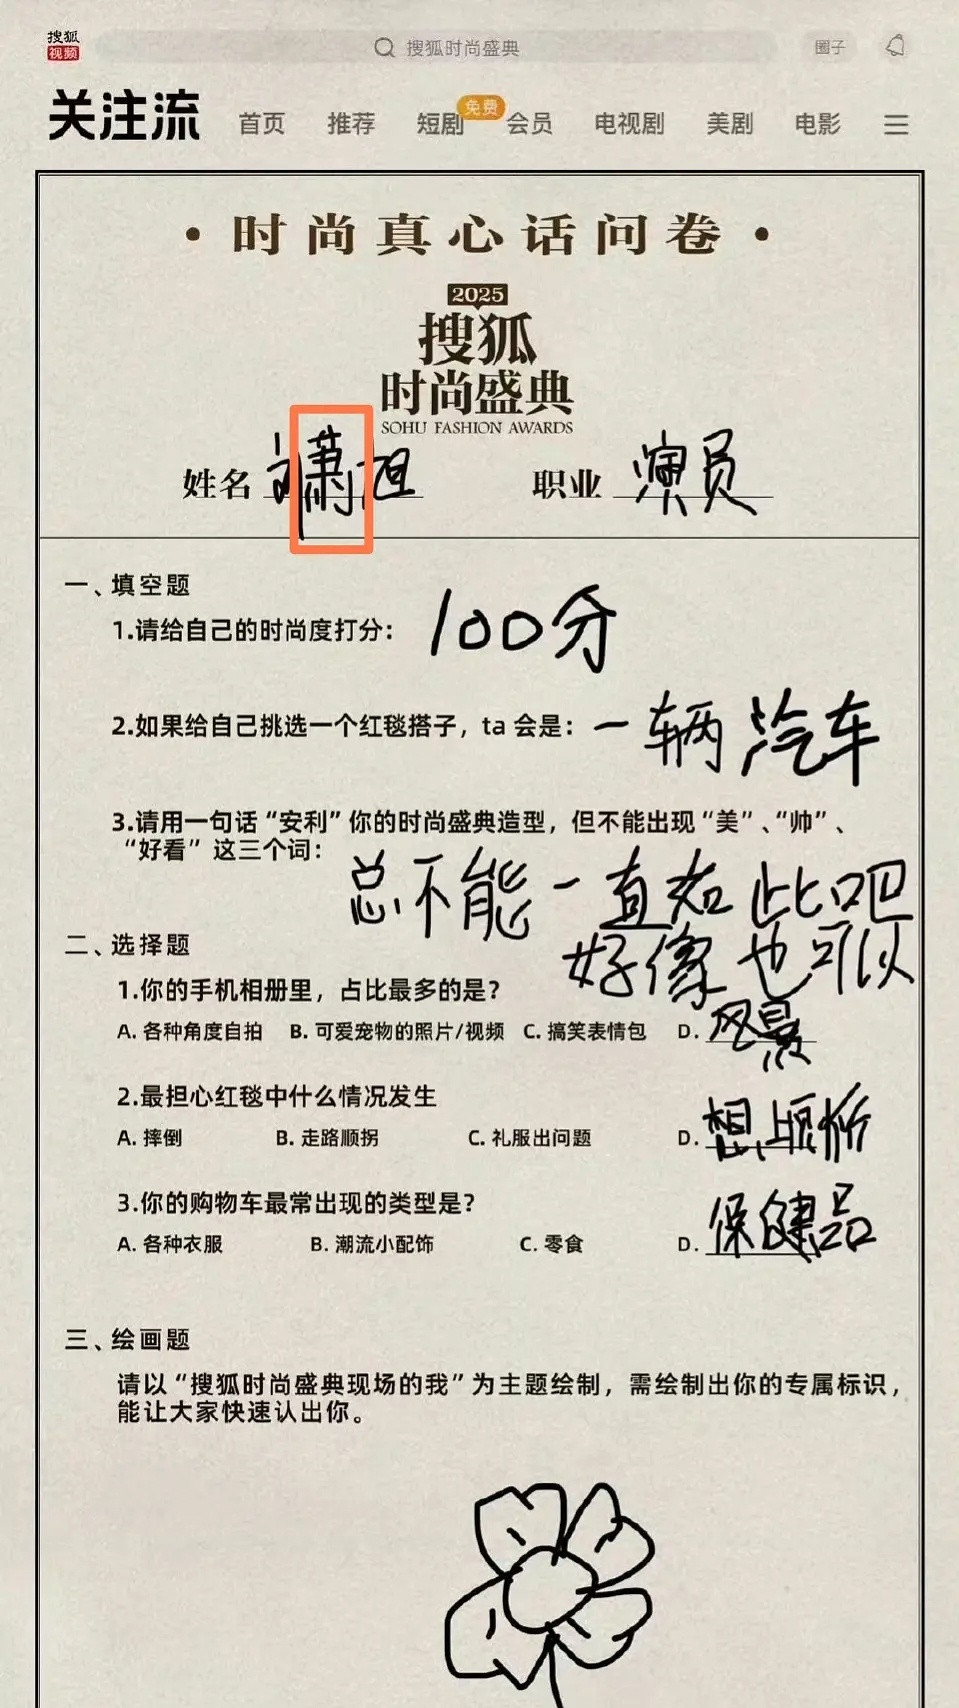 搜狐
视频
搜狐时尚盛典
圈子
关注流 首页 推荐 短剧 免费 会员 电视剧 美剧 电影
·时尚真心话问卷·
2025
搜狐
时尚盛典
SOHU FASHION AWARDS
姓名 职业 演员
一、填空题
1.请给自己的时尚度打分： 100分
2.如果给自己挑选一个红毯搭子，ta 会是： 一辆汽车
3.请用一句话“安利”你的时尚盛典造型，但不能出现“美”、“帅”、
“好看” 这三个词： 总不能一直如此吧
好像也可以
二、选择题
1.你的手机相册里，占比最多的是？
A. 各种角度自拍 B. 可爱宠物的照片/视频 C. 搞笑表情包 D. 风景
2.最担心红毯中什么情况发生
A. 摔倒 B. 走路顺拐 C. 礼服出问题 D. 想上厕所
3.你的购物车最常出现的类型是？
A. 各种衣服 B. 潮流小配饰 C. 零食 D. 保健品
三、绘画题
请以“搜狐时尚盛典现场的我”为主题绘制，需绘制出你的专属标识，
能让大家快速认出你。